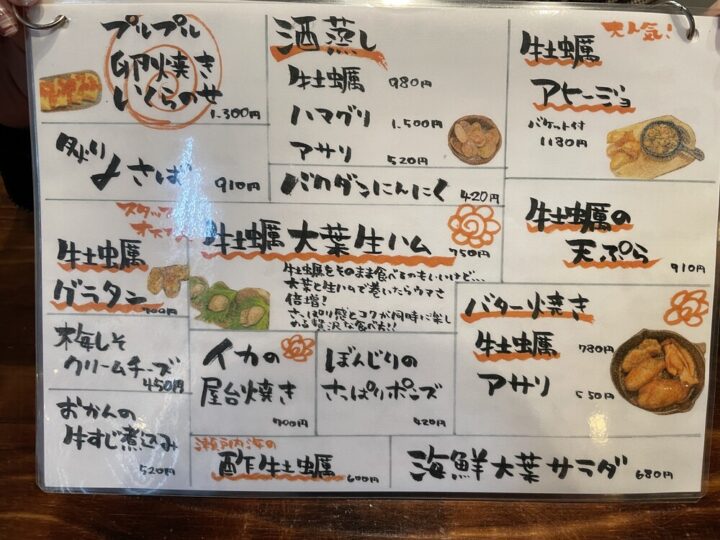 プルプル
卵焼き
いくらのせ
1,300円
酒蒸し
牡蠣 980円
ハマグリ 1,500円
アサリ 520円
大人気!
牡蠣
アヒージョ
バケット付
1180円
さば 910円
バカダシにんにく 420円
牡蠣の
天ぷら
910円
スタッフ
オススメ
牡蠣
グラタン
牡蠣大葉生ハム 750円
牡蠣をそのまま食べるのもいいけど...
大葉と生ハムで巻いたらウマさ
倍増!
さっぱり感とコクが同時に楽し
める贅沢な食べ方!!
バター焼き
牡蠣 780円
アサリ 550円
梅しそ
クリームチーズ
450円
イカの
屋台焼き
700円
ぼんじりの
さっぱりポン酢
420円
おかんの
牛すじ煮込み
520円
瀬戸内海の
酢牡蠣 600円
海鮮大葉サラダ 680円